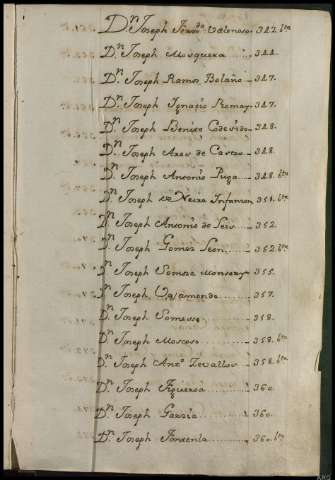 Dn. Joseph Ferndo Valenosa 322 bta
Dn. Joseph Mosquera 324.
Dn. Joseph Ramon Bolaño 327.
Dn. Joseph Ignazio Romay 327.
Dn. Joseph Benito 328.
Dn. Joseph de Castro 328.
Dn. Joseph Antonio Puga 328 bta
Dn. Joseph de Neira 351. bta
Dn. Joseph Antonio de 352.
Dn. Joseph Gomez Leon 352. bta
Dn. Joseph Somoza 355.
Dn. Joseph 357.
Dn. Joseph 358.
Dn. Joseph Moscoso 358. bta
Dn. Joseph Anto. Zevallos 358. bta
Dn. Joseph Figueroa 360
Dn. Joseph Garzia 360.
Dn. Joseph Fontenla 360. bta